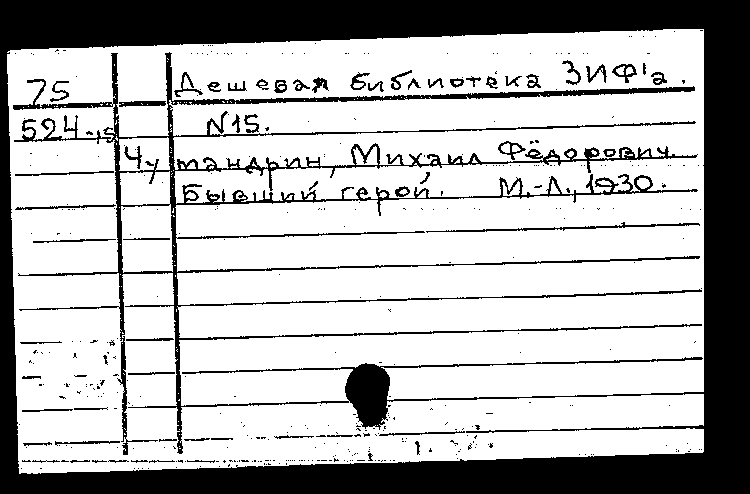 75 Дешевая библиотека ЗИФ'а.
524-15 N15.
Чумандрин, Михаил Фёдорович.
Бывший герой. М.-Л., 1930.